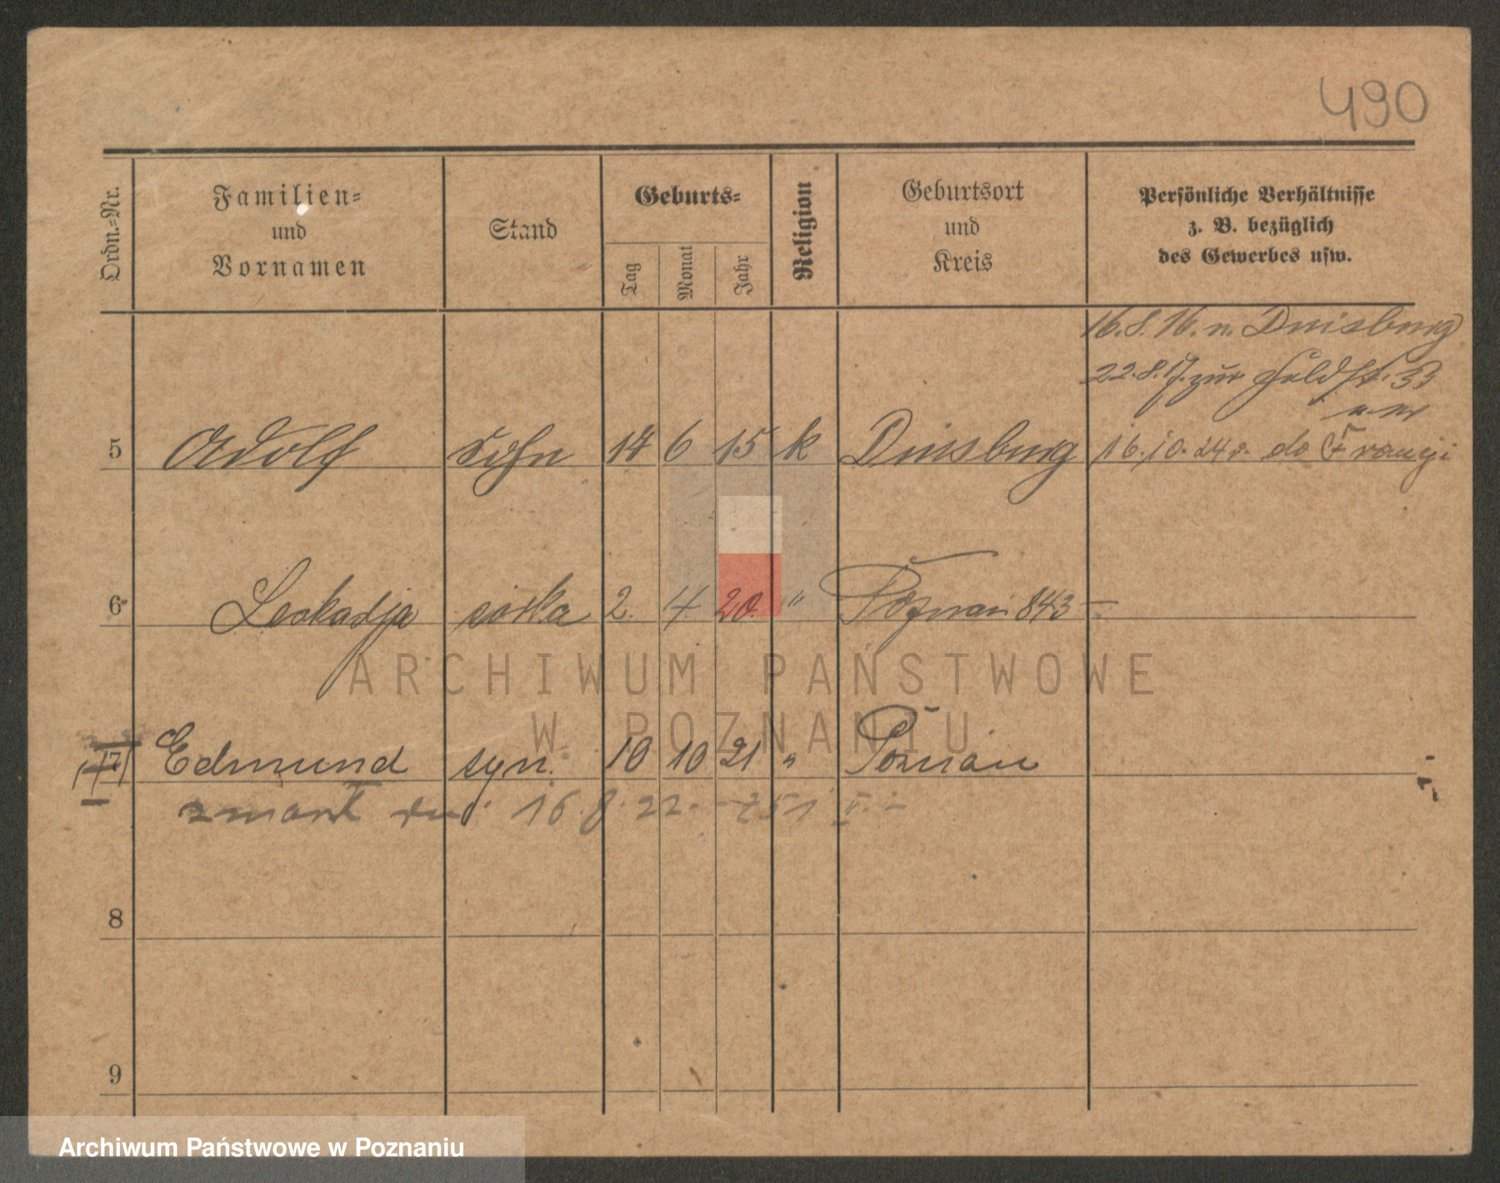 490
Ordn.-Nr.
Familien-
und
Vornamen
Stand
Geburts-
Tag
Monat
Jahr
Religion
Geburtsort
und
Kreis
Persönliche Verhältnisse
z. B. bezüglich
des Gewerbes usw.
16.8.16. n. Duisburg
22.8.17. zur Feldst. 33
5 Adolf Sohn 14 6 15 k Duisburg 16.10.24 r. do Francji
6 Leokadja córka 2. 4. 20. " Poznań 843 —
7 Edmund syn. 10 10 21 " Poznań
zmarł dn. 16.8.22. - 751
8
9
ARCHIWUM PAŃSTWOWE
W POZNANIU
Archiwum Państwowe w Poznaniu